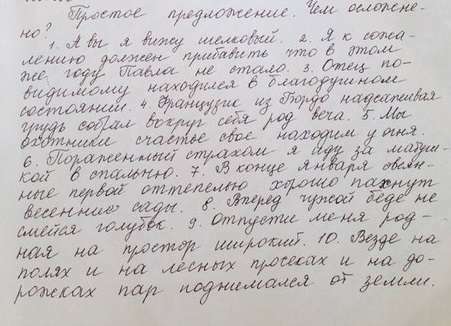 Простое предложение. Чем осложне-
но?
1. А вы я вижу шелковый. 2. Я к сожа-
лению должен прибавить что в этом
же, году Павла не стало. 3. Отец по-
видимому находился в благодушном
состоянии. 4. Французик из Бордо надсаживая
грудь собрал вокруг себя род веча. 5. Мы
охотники счастье своё находим у огня.
6. Поражённый страхом я иду за матуш-
кой в спальню. 7. В конце января овеян-
ные первой оттепелью хорошо пахнут
весенние сады. 8. Вперёд чужой беде не
смейся голубок. 9. Отпусти меня род-
ная на простор широкий. 10. Везде на
полях и на лесных просеках и на до-
рожках пар поднимался от земли.